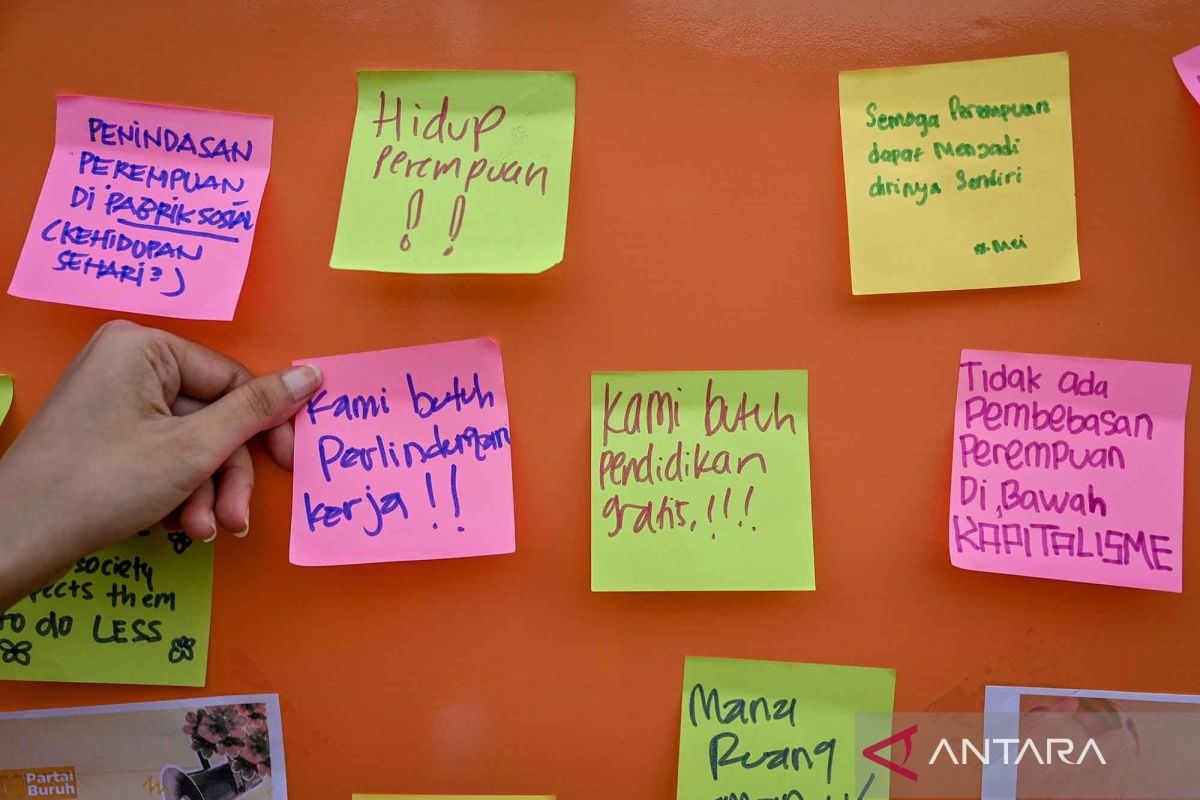 PENINDASAN
PEREMPUAN
DI PABRIK SOSIAL
(KEHIDUPAN
SEHARI²)
Hidup
Perempuan
!!
Semoga Perempuan
dapat Menjadi
dirinya Sendiri
#Mei
Kami butuh
Perlindungan
kerja!!
Kami butuh
pendidikan
gratis,!!!
Tidak ada
Pembebasan
Perempuan
Di Bawah
KAPITALISME
society
them
to do LESS
Mana
Ruang
Partai
Buruh
ANTARA